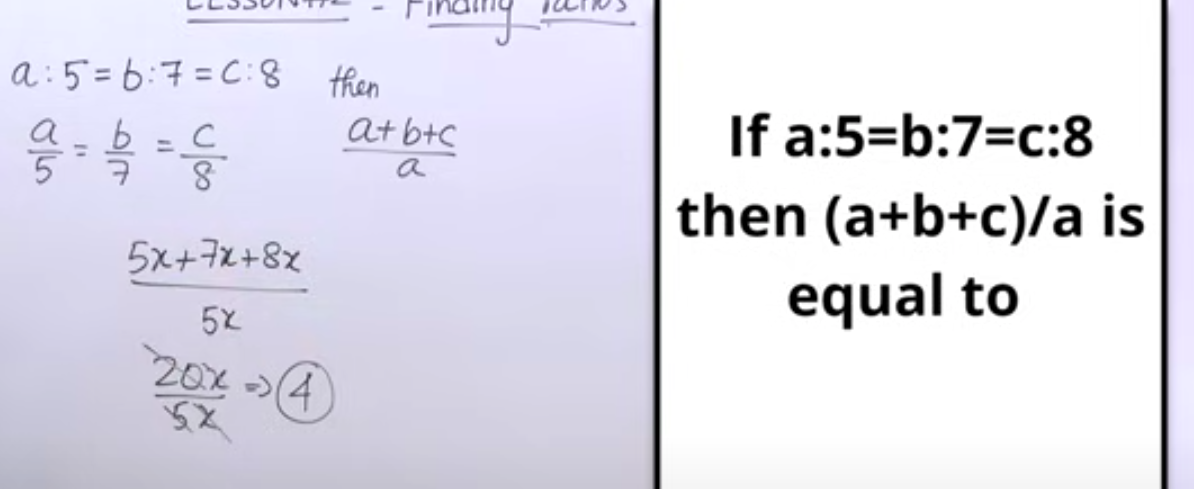 - Finding
a:5=b:7=c:8 then
a/5 = b/7 = c/8 (a+b+c)/a
5x+7x+8x
5x
20x => 4
5x
If a:5=b:7=c:8
then (a+b+c)/a is
equal to